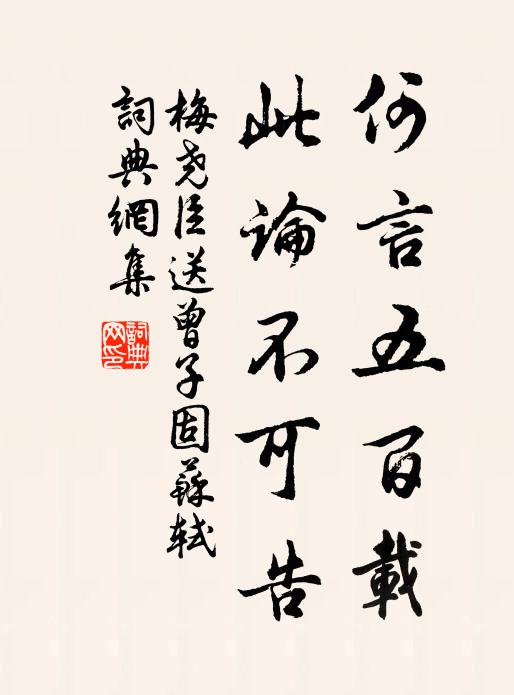 何言五百載
此論不可告
梅尧臣送曾子固蘇軾
詞典網集
詞典网印